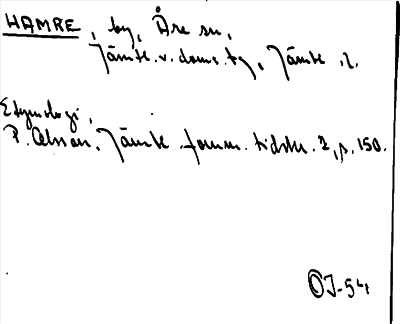 HAMRE, by, Åre sn,
Jämtl. v. doms. tg, Jämtl. l.
Etymologi,
P. Olsson, Jämtl. fornm. tidskr. 2, p. 150.
OJ-54